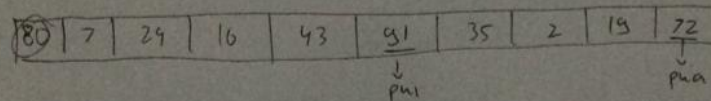 80 7 24 16 43 91 35 2 19 72
pu1 pua